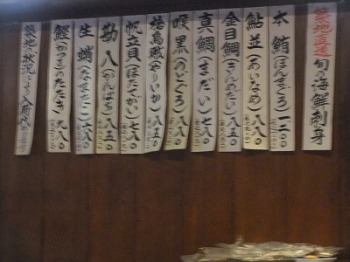 築地直送 旬の海鮮刺身
本鮪(ほんまぐろ)一二〇〇
鮎並(あいなめ)八八〇
金目鯛(きんめだい)八五〇
真鯛(まだい)七八〇
喉黒(のどぐろ)八八〇
(やりいか)八五〇
帆立貝(ほたてがい)七八〇
勘八(かんぱち)八五〇
生蛸(なまたこ)七八〇
鰹(かつおのたたき)九八〇
築地の状況により入荷